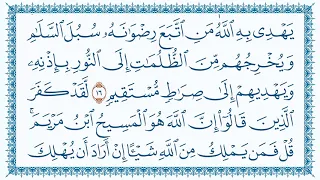 يَهْدِى بِهِ ٱللَّهُ مَنِ ٱتَّبَعَ رِضْوَٰنَهُۥ سُبُلَ ٱلسَّلَٰمِ
وَيُخْرِجُهُم مِّنَ ٱلظُّلُمَٰتِ إِلَى ٱلنُّورِ بِإِذْنِهِۦ
وَيَهْدِيهِمْ إِلَىٰ صِرَٰطٍ مُّسْتَقِيمٍ ١٦ لَّقَدْ كَفَرَ
ٱلَّذِينَ قَالُوٓا۟ إِنَّ ٱللَّهَ هُوَ ٱلْمَسِيحُ ٱبْنُ مَرْيَمَ ۚ
قُلْ فَمَن يَمْلِكُ مِنَ ٱللَّهِ شَيْـًٔا إِنْ أَرَادَ أَن يُهْلِكَ